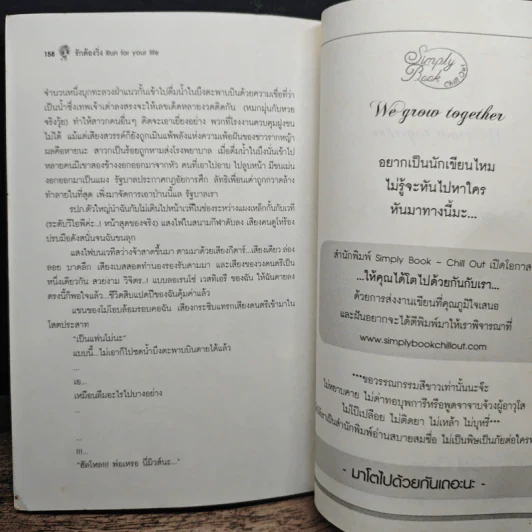 158 รักต้องวิ่ง Run for your life
จำนวนหนึ่งบุกทะลวงฝ่าแนวกั้นเข้าไปดื่มน้ำในบึงตะพาบบินด้วยความเชื่อที่ว่า
เป็นน้ำซึ่งเทพเจ้าเต่าลงสรงจะให้เลขเด็ดหลายงวดติดกัน (หมกมุ่นกับหวย
จริงวุ้ย) ทำให้สาวกคนอื่นๆ คิดจะเอาเยี่ยงอย่าง พวกที่โรงงานควบคุมฝูงชน
ไม่ได้ แม้แต่เสียงสวรรค์ก็ยังถูกเมินแพ้พลังแห่งความเพ้อฝันของชาวรากหญ้า
ผลคือหายนะ สาวกเป็นร้อยถูกหามส่งโรงพยาบาล เมื่อดื่มน้ำในบึงนั่นเข้าไป
หลายคนมีเขาสองข้างงอกออกมาจากหัว คนที่เอาไปอาบ ไปลูบหน้า มีขนแม่ง
งอกออกมาเป็นแผง รัฐบาลประกาศกฎอัยการศึก ลัทธิเพื่อนเต่าถูกกวาดล้าง
ทำลายในที่สุด เพิ่งมาจัดการเอาป่านนี้แล รัฐบาลเรา
รปภ.ตัวใหญ่นำฉันกับโม่เดินไปหน้าเวทีในช่องระหว่างแผงเหล็กกั้นกับเวที
(ระดับวีไอพีค่ะ..! หน้าสุดของจริง) แสงไฟในสนามกีฬาดับลง เสียงคนดูโห่ร้อง
ปรบมือดังสนั่นจนฉันขนลุก
แสงไฟบนเวทีสว่างจ้าสาดขึ้นมา ตามมาด้วยเสียงกีตาร์...เสียงเดี่ยว ล่อง
ลอย บาดลึก เสียงเบสสอดทำนองรองรับตามมา และเสียงของวงดนตรีเป็น
หนึ่งเดียวกัน สวยงาม วิจิตร..! แบบลอเรนโซ่ เวสทิเอรี ของฉัน ให้ฉันตายลง
ตรงนี้ก็พอใจแล้ว...ชีวิตสิบแปดปีของฉันคุ้มค่าแล้ว
แขนของโม่โอบล้อมรอบคอฉัน เสียงกระซิบแทรกเสียงดนตรีเข้ามาใน
โสตประสาท
"เป็นแฟนโม่นะ"
แบบนี้...ไม่เอาก็ไปซดน้ำบึงตะพาบบินตายได้แล้ว
...
เอ...
เหมือนลืมอะไรไปบางอย่าง
...
...
!!!...
"ฮัลโหล!!! พ่อเหรอ นี่มิวส์นะ..."
Simply
Book
Chill Out
We grow together
อยากเป็นนักเขียนไหม
ไม่รู้จะหันไปหาใคร
หันมาทางนี้มะ...
สำนักพิมพ์ Simply Book – Chill Out เปิดโอกาส
...ให้คุณได้โตไปด้วยกันกับเรา...
ด้วยการส่งงานเขียนที่คุณภูมิใจเสนอ
และฝันอยากจะได้ตีพิมพ์มาให้เราพิจารณาที่
www.simplybookchillout.com
***ขอวรรณกรรมสีขาวเท่านั้นนะจ๊ะ
ไม่หยาบคาย ไม่ด่าทอบุพการีหรือพูดจาจาบจ้วงผู้อาวุโส
ไม่โป๊เปลือย ไม่ติดยา ไม่เหล้า ไม่บุหรี่***
เป็นสำนักพิมพ์อ่านสบายสมชื่อ ไม่เป็นพิษเป็นภัยต่อใคร
- มาโตไปด้วยกันเถอะนะ -